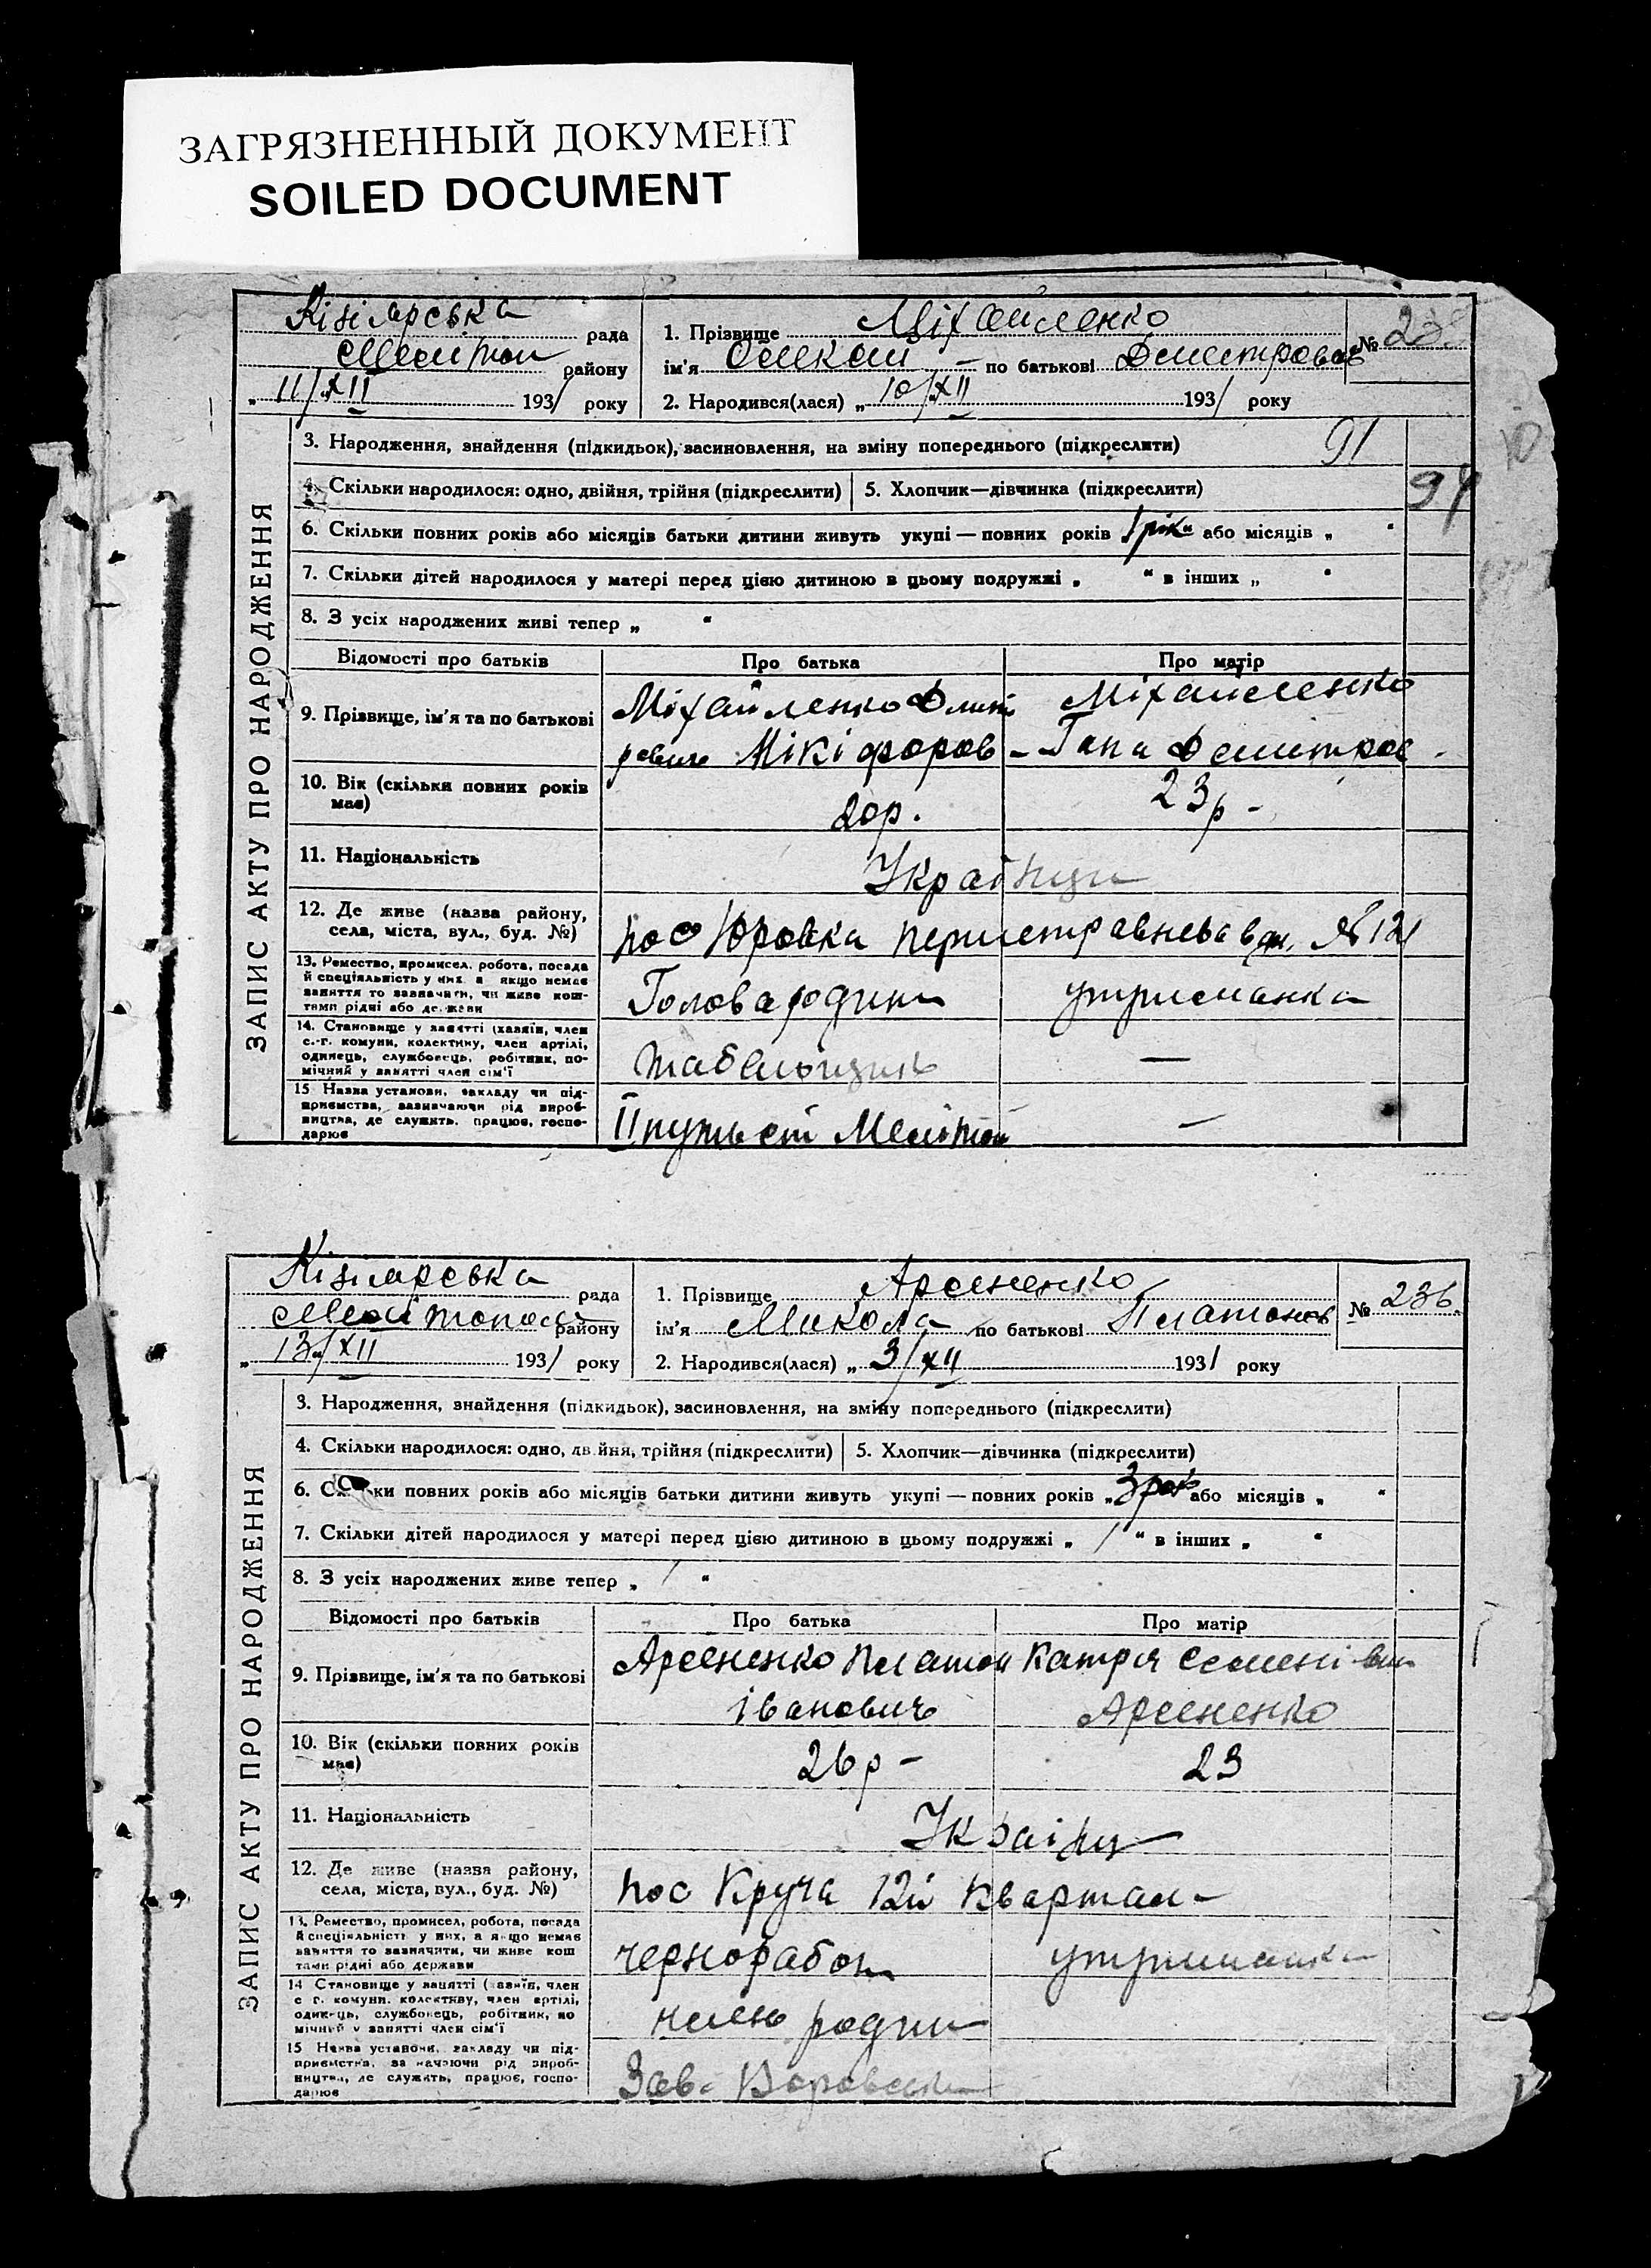 ЗАГРЯЗНЕННЫЙ ДОКУМЕНТ
SOILED DOCUMENT
Кізіярська рада
Меліт пол району
„ 11/XII 1931 року
1. Прізвище Міхайленко
ім'я Олексій по батькові Дмитров
№
2. Народився(лася) „ 10/XII 1931 року
ЗАПИС АКТУ ПРО НАРОДЖЕННЯ
3. Народження, знайдення (підкидьок), засиновлення, на зміну попереднього (підкреслити) 91
94
4. Скільки народилося: одно, двійня, трійня (підкреслити) 5. Хлопчик—дівчинка (підкреслити)
6. Скільки повних років або місяців батьки дитини живуть укупі — повних років 1 рік або місяців „ “
7. Скільки дітей народилося у матері перед цією дитиною в цьому подружжі „ “ в інших „ “
8. З усіх народжених живі тепер „ “
Відомості про батьків Про батька Про матір
9. Прізвище, ім'я та по батькові Міхайленко Міхайленко
Мікіфоров - Гапа Дмитров -
10. Вік (скільки повних років має) 20р. 23р -
11. Національність Українці
12. Де живе (назва району, села, міста, вул., буд. №) пос Юровка №121
13. Ремество, промисел, робота, посада й спеціяльність у них, а якщо немає заняття то зазначити, чи живе коштами рідні або держави Голова родини утриманка
14. Становище у занятті (хазяїн, член с.-г. комуни, колективу, член артілі, одинець, службовець, робітник, помічний у занятті член сім'ї табельщик —
15 Назва установи, закладу чи підприємства, зазначаючи рід виробництва, де служить, працює, господарює II путь ст Мелітоп —
Кізіярська рада
Мелітополь району
„ 13/XII 1931 року
1. Прізвище Арсененко
ім'я Микола по батькові Платонов
№ 236.
2. Народився(лася) „ 3/XII 1931 року
ЗАПИС АКТУ ПРО НАРОДЖЕННЯ
3. Народження, знайдення (підкидьок), засиновлення, на зміну попереднього (підкреслити)
4. Скільки народилося: одно, двійня, трійня (підкреслити) 5. Хлопчик—дівчинка (підкреслити)
6. Скільки повних років або місяців батьки дитини живуть укупі — повних років „ 3 рок або місяців „ “
7. Скільки дітей народилося у матері перед цією дитиною в цьому подружжі „ / “ в інших „ “
8. З усіх народжених живе тепер „ / “
Відомості про батьків Про батька Про матір
9. Прізвище, ім'я та по батькові Арсененко Платон Катря Семенівна
Іванович Арсененко
10. Вік (скільки повних років має) 26р - 23
11. Національність Українц
12. Де живе (назва району, села, міста, вул., буд. №) пос Круча 12й Квартал -
13. Ремество, промисел, робота, посада й спеціяльність у них, а якщо немає заняття то зазначити, чи живе коштами рідні або держави чернорабоч утриманка
14 Становище у занятті (хазяїн, член с г. комуни, колективу, член артілі, одинець, службовець, робітник, помічний у занятті член сім'ї член родини
15 Назва установи, закладу чи підприємства, зазначаючи рід виробництва, де служить, працює, господарює Зав.